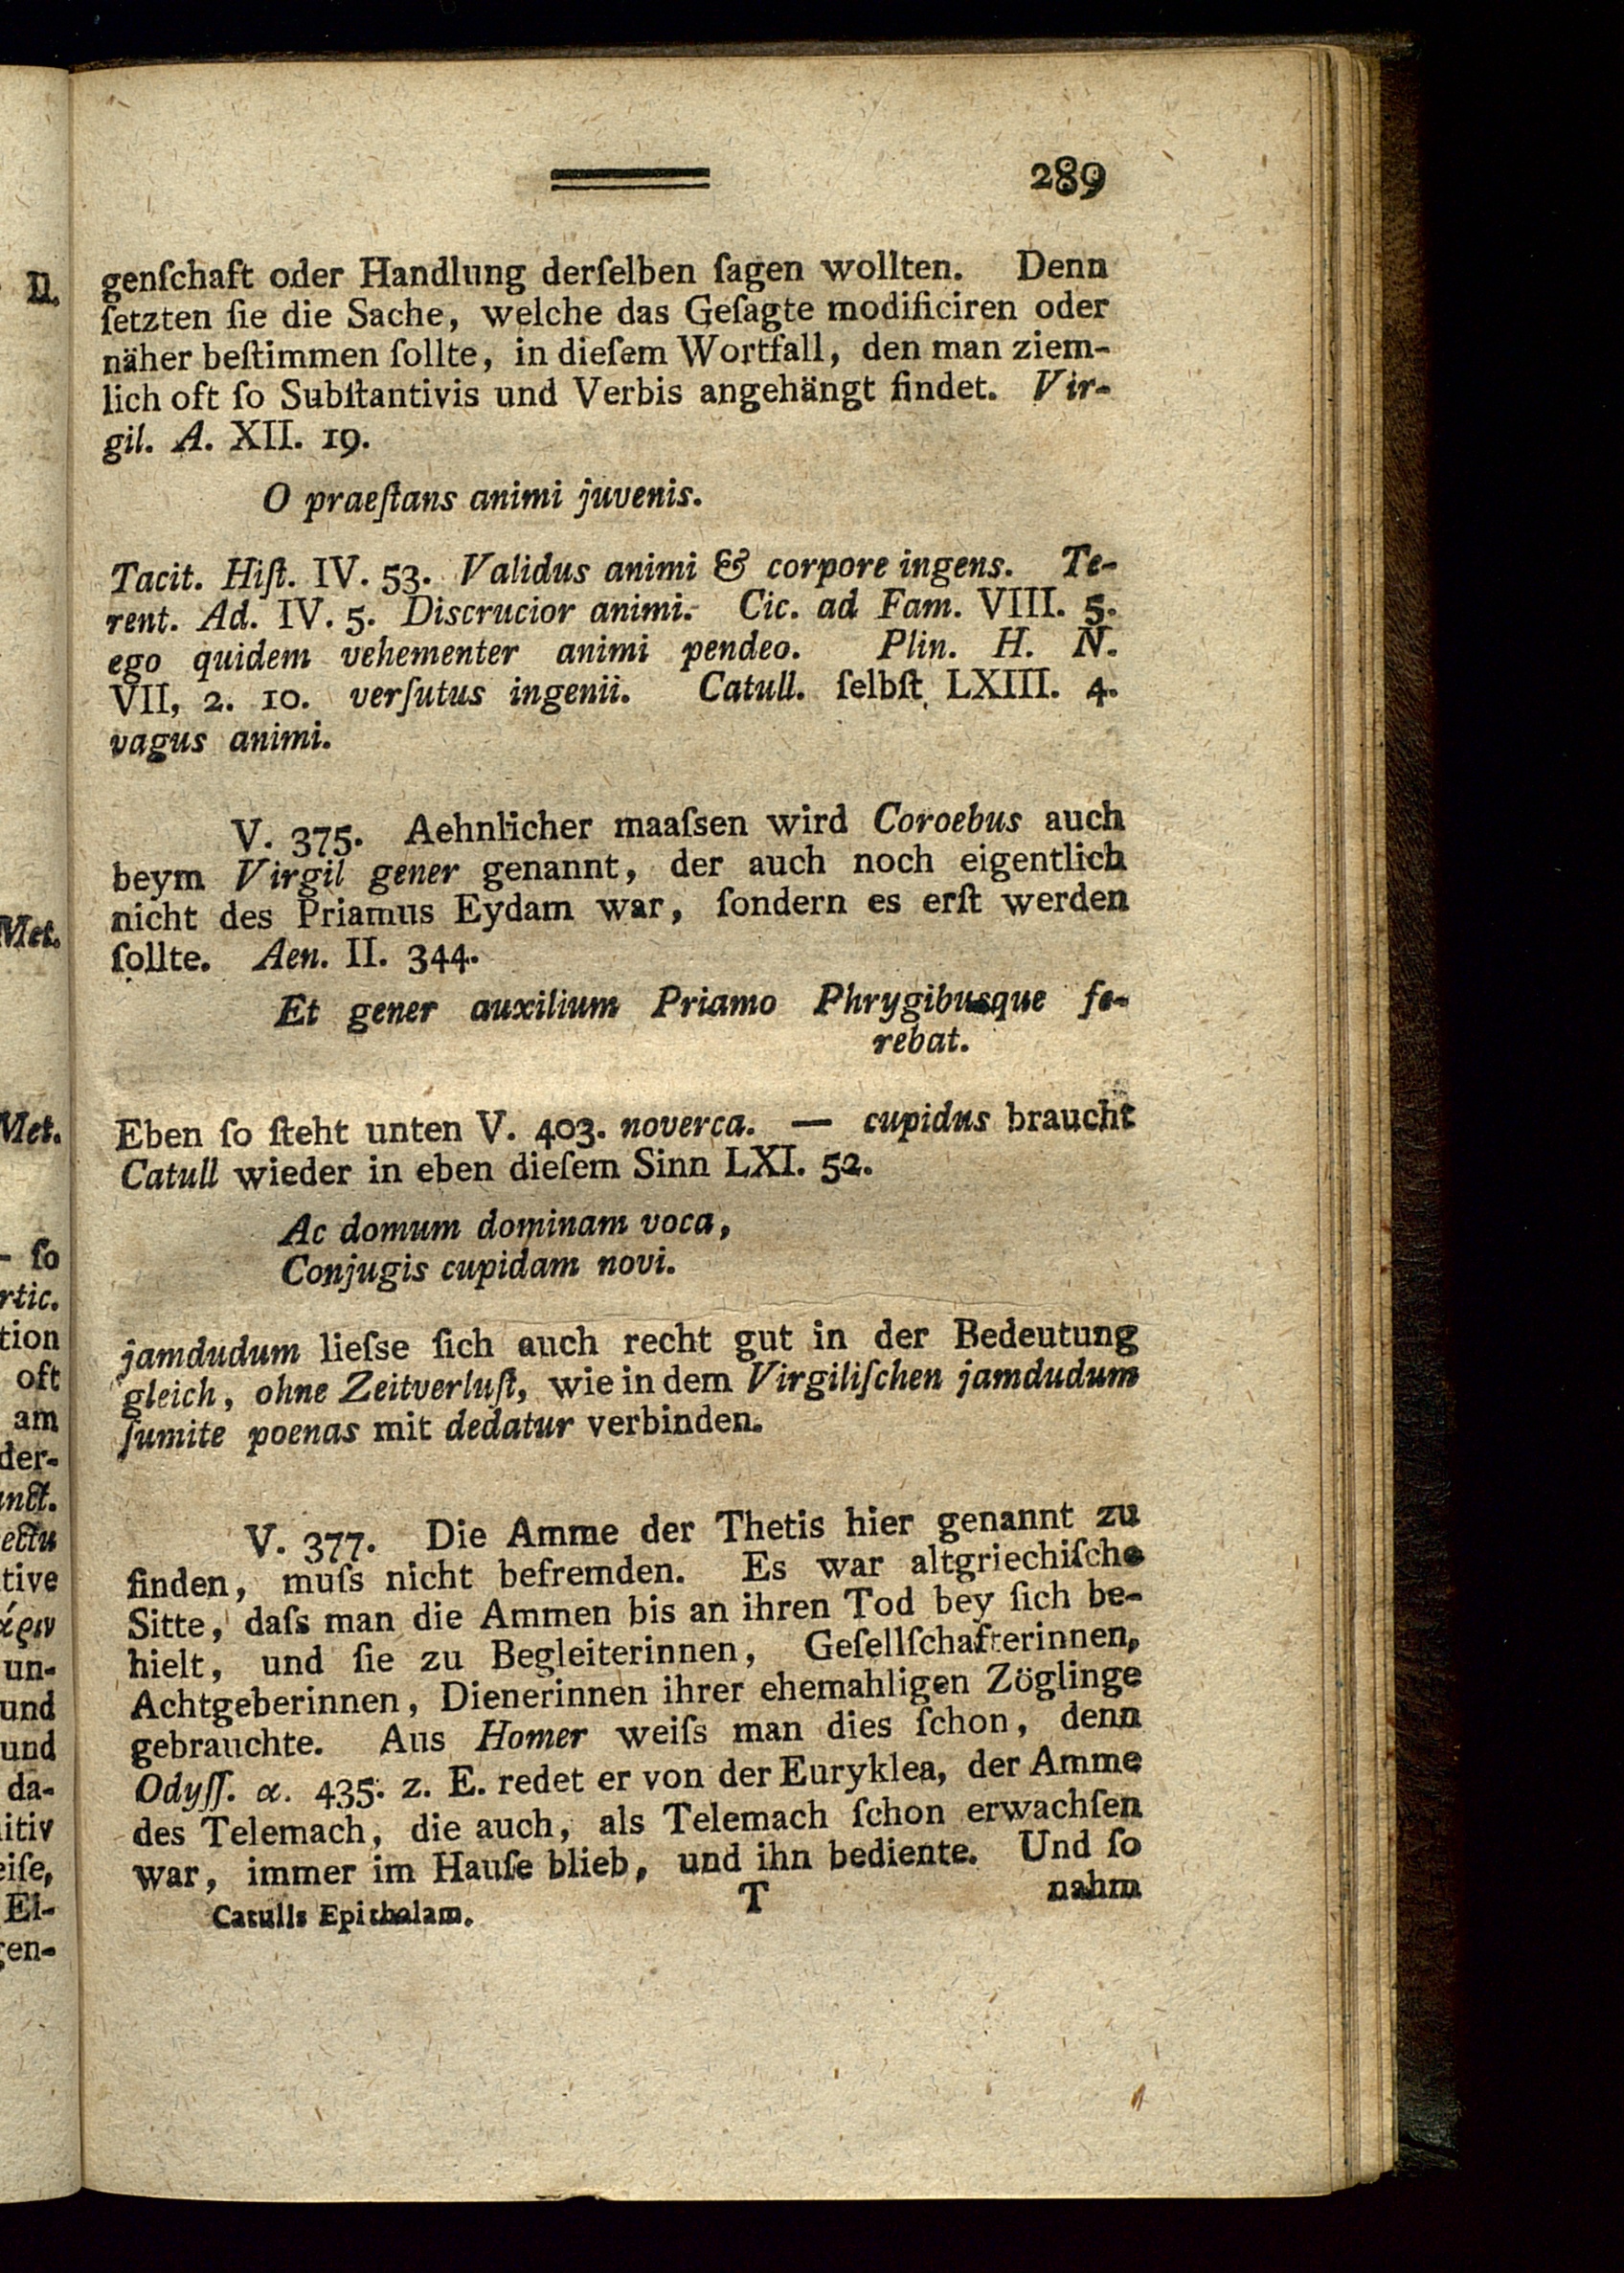 289
genſchaft oder Handlung derſelben ſagen wollten. Denn
ſetzten ſie die Sache, welche das Geſagte modificiren oder
näher beſtimmen ſollte, in dieſem Wortfall, den man ziem-
lich oft ſo Subſtantivis und Verbis angehängt findet. Vir-
gil. A. XII. 19.
O praeſtans animi juvenis.
Tacit. Hiſt. IV. 53. Validus animi & corpore ingens. Te-
rent. Ad. IV. 5. Discrucior animi. Cic. ad Fam. VIII. 5.
ego quidem vehementer animi pendeo. Plin. H. N.
VII, 2. 10. verſutus ingenii. Catull. ſelbſt LXIII. 4.
vagus animi.
V. 375. Aehnlicher maaſsen wird Coroebus auch
beym Virgil gener genannt, der auch noch eigentlich
nicht des Priamus Eydam war, ſondern es erſt werden
ſollte. Aen. II. 344.
Et gener auxilium Priamo Phrygibusque fe-
rebat.
Eben ſo ſteht unten V. 403. noverca. — cupidus braucht
Catull wieder in eben dieſem Sinn LXI. 52.
Ac domum dominam voca,
Conjugis cupidam novi.
jamdudum lieſse ſich auch recht gut in der Bedeutung
gleich, ohne Zeitverluſt, wie in dem Virgiliſchen jamdudum
ſumite poenas mit dedatur verbinden.
V. 377. Die Amme der Thetis hier genannt zu
finden, muſs nicht befremden. Es war altgriechiſche
Sitte, daſs man die Ammen bis an ihren Tod bey ſich be-
hielt, und ſie zu Begleiterinnen, Geſellſchafterinnen,
Achtgeberinnen, Dienerinnen ihrer ehemahligen Zöglinge
gebrauchte. Aus Homer weiſs man dies ſchon, denn
Odyſſ. α. 435. z. E. redet er von der Euryklea, der Amme
des Telemach, die auch, als Telemach ſchon erwachſen
war, immer im Hauſe blieb, und ihn bediente. Und ſo
Catulls Epithalam. T nahm
II.
Met.
Met.
- ſo
rtic.
tion
oft
am
der-
unct.
ectu
tive
άριν
un-
und
und
da-
itiv
eiſe,
Ei-
gen-